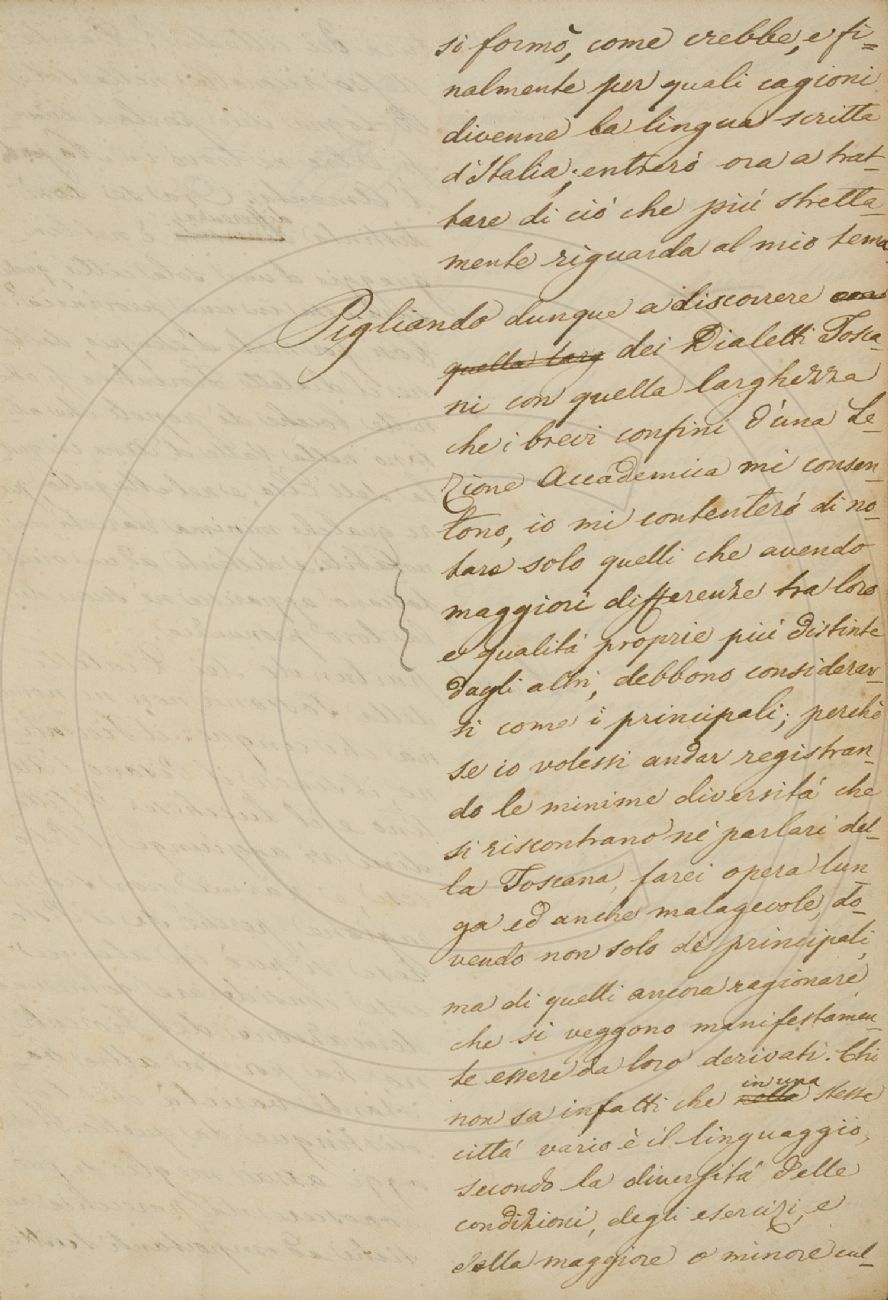 si formò, come crebbe, e fi=
nalmente per quali cagioni
divenne la lingua scritta
d'Italia; entrerò ora a trat-
tare di ciò che più stretta-
mente riguarda al mio tema
Pigliando dunque a discorrere con
quella larg dei Dialetti Tosca-
ni con quella larghezza
che i brevi confini d'una Le-
zione Accademica mi consen-
tono, io mi contenterò di no-
tare solo quelli che avendo
maggiori differenze tra loro
e qualità proprie più distinte
dagli altri, debbono considerar-
si come i principali; perchè
se io volessi andar registran-
do le minime diversità che
si riscontrano nè parlari del-
la Toscana, farei opera lun-
ga ed anche malagevole, do-
vendo non solo dè principali,
ma di quelli ancora ragionare
che si veggono manifestamen-
te essere da loro derivati. Chi
non sa infatti che nella in una stessa
città vario è il linguaggio,
secondo la diversità delle
condizioni, degli esercizi, e
della maggiore o minore cul-